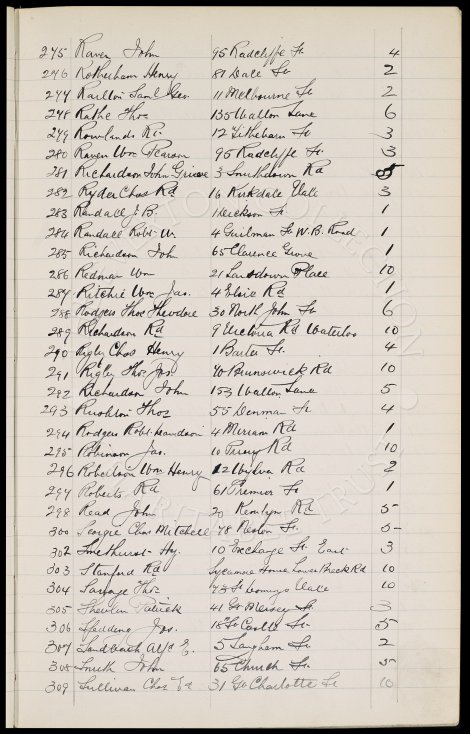 275 Raven John 95 Radcliffe St 4
276 Rotherham Henry 81 Dale St 2
277 Railton Saml Geo. 11 Melbourne St 2
278 Rathe Thos 135 Walton Lane 6
279 Rowlands Rd. 12 Tithebarn St 3
280 Raven Wm Pearson 95 Radcliffe St 3
281 Richardson John 3 Smithdown Rd 5
282 Ryder Chas Rd 16 Kirkdale Vale 3
283 Randall J. B. 1 St 1
284 Randall Robt W. 4 St W. B. Road 1
285 Richardson John 65 Clarence Grove 1
286 Redman Wm 21 Lansdown Place 10
287 Ritchie Wm Jas. 4 Elsie Rd 1
288 Rodgers Thos Theodore 30 North John St 6
289 Richardson Rd 9 Victoria Rd Waterloo 10
290 Rigby Chas Henry 1 Baxter St. 4
291 Rigby Thos Jos 40 Brunswick Rd 10
292 Richardson John 153 Walton Lane 5
293 Rushton Thos 55 Denman St 4
294 Rodgers Robt 4 Miriam Rd 1
295 Robinson Jas. 10 Priory Rd 10
296 Robertson Wm Henry Rd 2
297 Roberts Rd 61 Premier St 1
298 Read John 20 Kemlyn Rd 5
300 Chas Mitchell 78 Neston St. 5
302 Smethurst Hy. 10 Exchange St East 3
303 Stanford Rd Sycamore House Lower Breck Rd 10
304 Savage Thos 93 St Domingo Vale 10
305 Patrick 41 Gt Mersey St 3
306 Spedding Jos. 18 St 5
307 Sandbach A/c E. 5 Langham St 2
308 Smith John 65 Church St 5
309 Sullivan Chas Ed 31 Gt Charlotte St 10